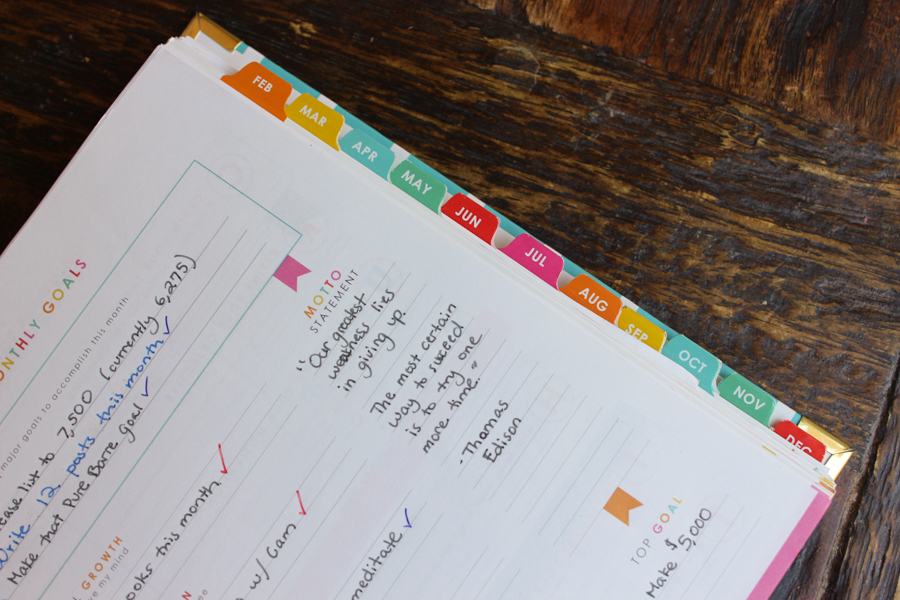 FEB
MAR
APR
MAY
JUN
JUL
AUG
SEP
OCT
NOV
DEC
ONTHLY GOALS
major goals to accomplish this month
ease list to 7,500 (currently 6,275)
Write 12 posts this month ✓
Make that Pure Barre goal ✓
GROWTH
ve my mind
ooks this month ✓
w/ Cam ✓
meditate ✓
MOTTO
STATEMENT
"Our greatest
weakness lies
in giving up.
The most certain
way to succeed
is to try one
more time."
- Thomas
Edison
TOP GOAL
Make $5,000